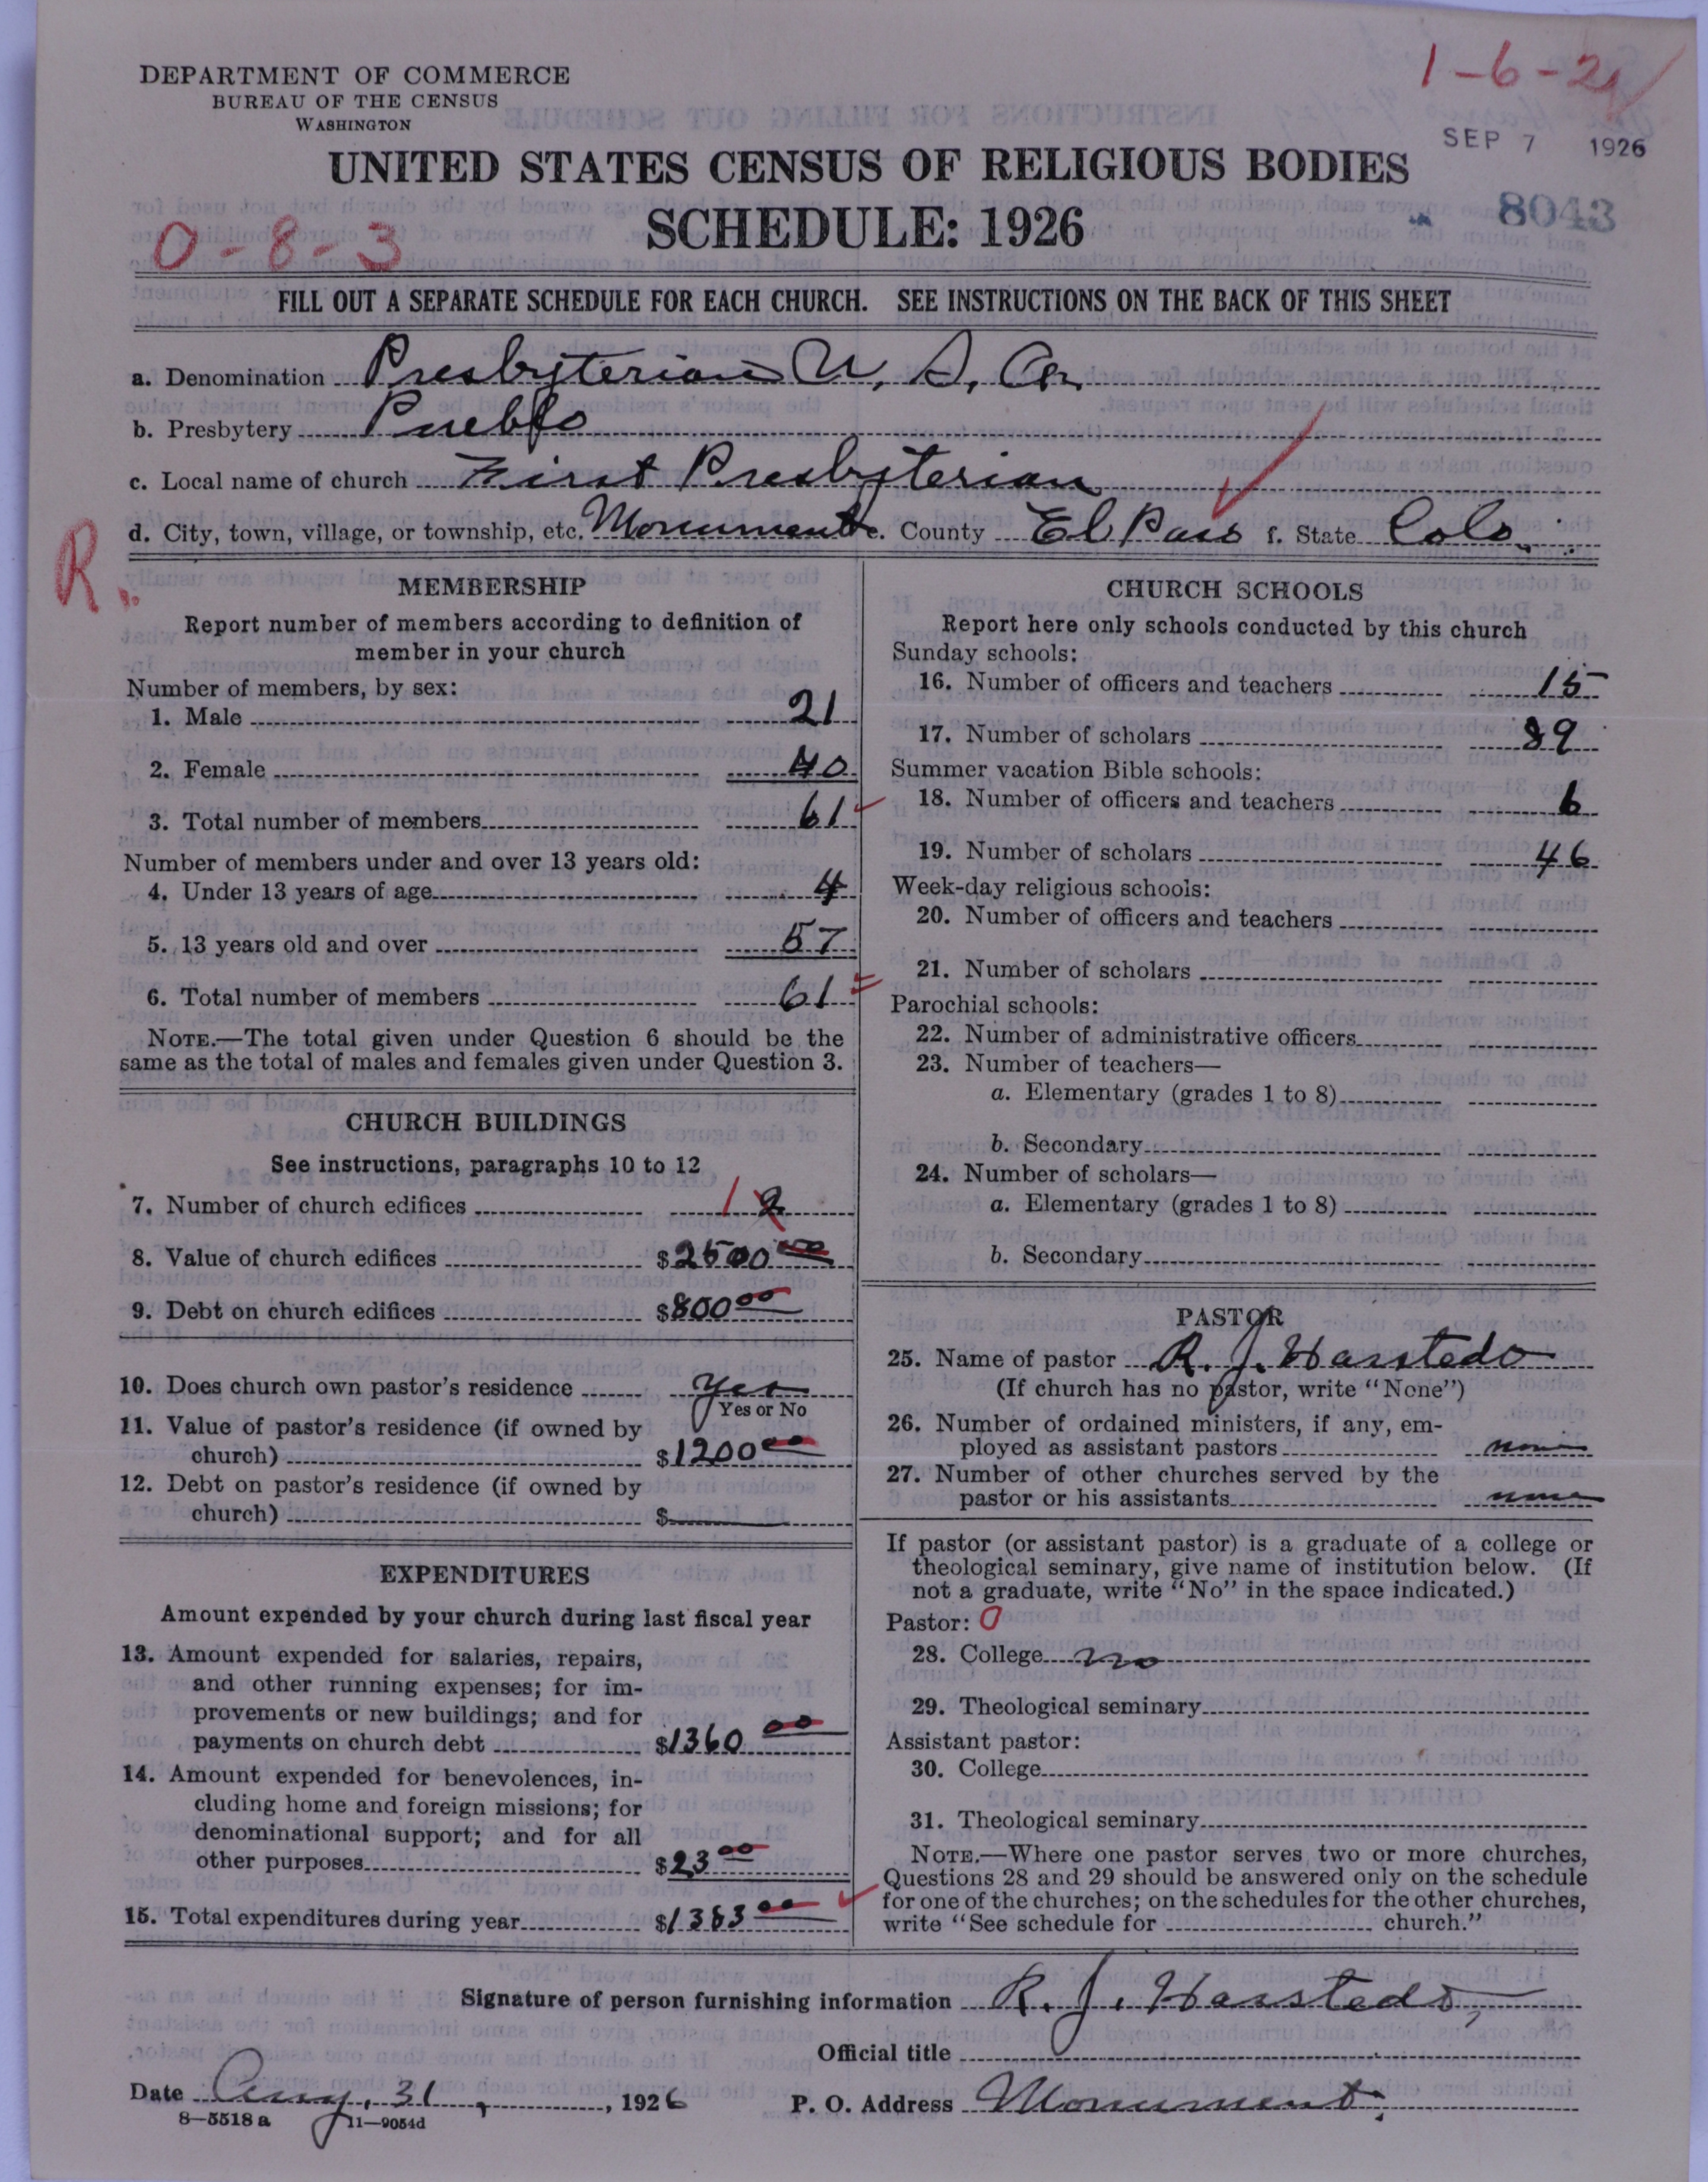 1-6-21
DEPARTMENT OF COMMERCE
BUREAU OF THE CENSUS
WASHINGTON
SEP 7 1926
UNITED STATES CENSUS OF RELIGIOUS BODIES
SCHEDULE: 1926
8043
0-8-3
FILL OUT A SEPARATE SCHEDULE FOR EACH CHURCH. SEE INSTRUCTIONS ON THE BACK OF THIS SHEET
a. Denomination Presbyterian U. S. A.
b. Presbytery Pueblo
c. Local name of church First Presbyterian
d. City, town, village, or township, etc. Monument e. County El Paso f. State Colo.
R.
MEMBERSHIP
Report number of members according to definition of
member in your church
Number of members, by sex:
1. Male 21
2. Female 40
3. Total number of members 61
Number of members under and over 13 years old:
4. Under 13 years of age 4
5. 13 years old and over 57
6. Total number of members 61
NOTE.—The total given under Question 6 should be the
same as the total of males and females given under Question 3.
CHURCH BUILDINGS
See instructions, paragraphs 10 to 12
7. Number of church edifices 1 2
8. Value of church edifices $2500 00
9. Debt on church edifices $800 00
10. Does church own pastor's residence Yes
Yes or No
11. Value of pastor's residence (if owned by
church) $1200 00
12. Debt on pastor's residence (if owned by
church) $
EXPENDITURES
Amount expended by your church during last fiscal year
13. Amount expended for salaries, repairs,
and other running expenses; for im-
provements or new buildings; and for
payments on church debt $1360 00
14. Amount expended for benevolences, in-
cluding home and foreign missions; for
denominational support; and for all
other purposes $23 00
15. Total expenditures during year $1383 00
CHURCH SCHOOLS
Report here only schools conducted by this church
Sunday schools:
16. Number of officers and teachers 15
17. Number of scholars 89
Summer vacation Bible schools:
18. Number of officers and teachers 6
19. Number of scholars 46
Week-day religious schools:
20. Number of officers and teachers
21. Number of scholars
Parochial schools:
22. Number of administrative officers
23. Number of teachers—
a. Elementary (grades 1 to 8)
b. Secondary
24. Number of scholars—
a. Elementary (grades 1 to 8)
b. Secondary
PASTOR
25. Name of pastor R. J. Harstedo
(If church has no pastor, write "None")
26. Number of ordained ministers, if any, em-
ployed as assistant pastors none
27. Number of other churches served by the
pastor or his assistants none
If pastor (or assistant pastor) is a graduate of a college or
theological seminary, give name of institution below. (If
not a graduate, write "No" in the space indicated.)
Pastor: 0
28. College no
29. Theological seminary
Assistant pastor:
30. College
31. Theological seminary
NOTE.—Where one pastor serves two or more churches,
Questions 28 and 29 should be answered only on the schedule
for one of the churches; on the schedules for the other churches,
write "See schedule for church."
Signature of person furnishing information R. J. Harstedo,
Official title
Date Aug. 31, 1926 P. O. Address Monument.
8—5518 a 11—9054d